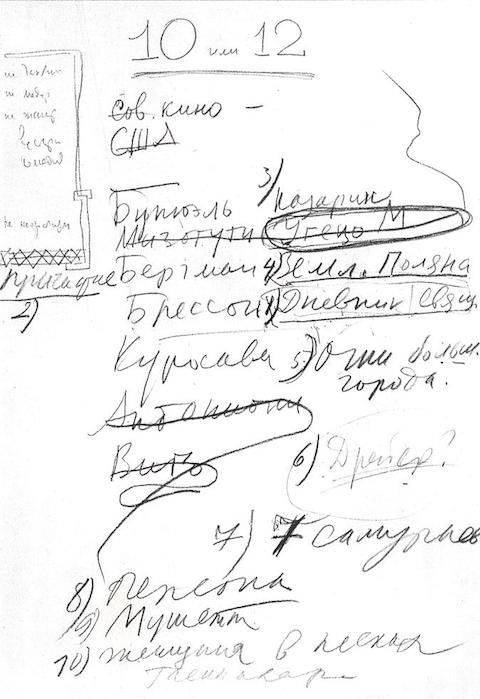 10 или 12
Сов. кино –
США
Бунюэль 3) Назарин
Мизогути Угецу М
Причастие Бергман 4) Земл. Поляна
2)
Брессон 1) Дневник свящ
Куросава 5) Огни больш.
города.
Антониони
Виго
6) Дрейер?
7) 7 самураев
8) Персона
9) Мушетт
10) женщина в песках